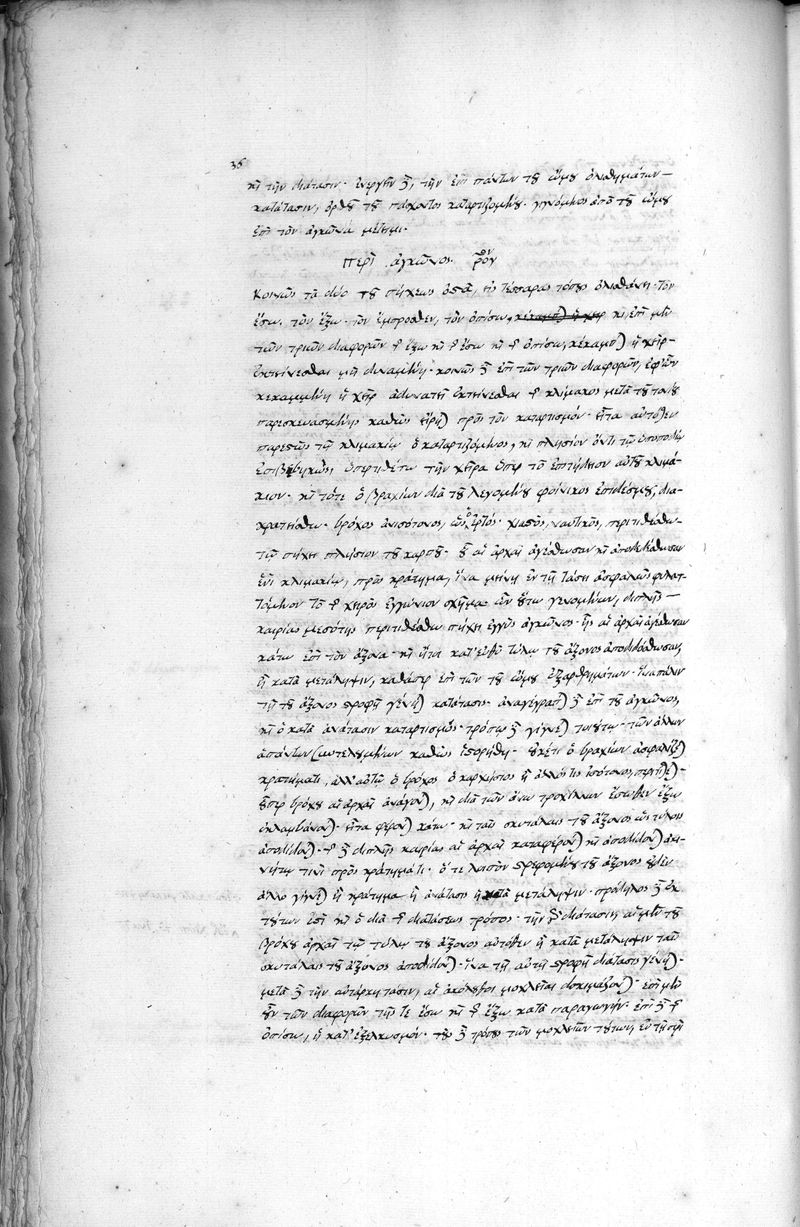 36
καὶ τὴν διάτασιν. ἐνεργεῖν δὲ, τὴν ἐπὶ πάντων τοῦ ὤμου ὀλισθημάτων
κατάτασιν, ὀρθοῦ τοῦ πάσχοντος καταρτιζομένου. γενόμενος ἀπὸ τοῦ ὤμου
ἐπὶ τὸν ἀγκῶνα μέτειμι.
περὶ ἀγκῶνος
Κοινῶς τὰ δύο τοῦ πήχεως ὀστᾶ, εἰς τέσσαρας τόπους ὀλισθάνει. τὸν
ἔσω. τὸν ἔξω. τὸν ἔμπροσθεν, τὸν ὀπίσω, καὶ ἐπὶ μὲν
τῶν τριῶν διαφορῶν τῆς ἔξω καὶ τῆς ἔσω καὶ τῆς ὀπίσω, κέκαμπται ἡ χεὶρ
ἐκτείνεσθαι μὴ δυναμένη. κοινῶς δὲ ἐπὶ τῶν τριῶν διαφορῶν, ἐφ' ὧν
κεκαμμένη ἡ χεὶρ ἀδυνατεῖ ἐκτείνεσθαι τῆς κλίμακος μετὰ τοῦ
παρεσκευασμένης καθὼς εἴρηται πρὸς τὸν καταρτισμὸν. εἶτα αὐτόθεν
παρεστὼς τῷ κλιμακίῳ ὁ καταρτιζόμενος, καὶ πλησίον ὄντι τῷ ὑποποδίῳ
ἐπιβεβηκὼς, ὑπερτιθέτω τὴν χεῖρα ὑπὲρ τὸ ἐπιτήδειον αὐτοῦ κλιμά-
κιον. καὶ τότε ὁ βραχίων διὰ τοῦ λεγομένου φοίνικος ἐπιδέσμου, δια-
κρατείσθω. βρόχος ἀνισότονος, ὡς ὁ ἑρτός. χιαστὸς, ναυτικὸς, περιτιθέσθω
τῷ πήχει πλησίον τοῦ καρποῦ. οὗ αἱ ἀρχαὶ ἀγέσθωσαν καὶ ἀποδεδέσθωσαν
ἑνὶ κλιμακίῳ, πρὸς κράτημα, ἵνα μένῃ ἐν τῇ τάσει ἀσφαλῶς φυλατ-
τόμενον τὸ τῆς χειρὸς ἐγγώνιον σχῆμα. ὧν οὕτω γενομένων, διπλῆς
καιρίας μεσότης περιτιθέσθω πήχει ἐγγὺς ἀγκῶνος. ἧς αἱ ἀρχαὶ ἀγέσθωσαν
κάτω ἐπὶ τὸν ἄξονα. καὶ ἤτοι κατ' εὐθὺ τύλῳ τοῦ ἄξονος ἀποδιδόσθωσαν,
ἢ κατὰ μετάληψιν, καθάπερ ἐπὶ τῶν τοῦ ὤμου ἐξαρθρημάτων. ἵνα πάλιν
τῇ τοῦ ἄξονος στροφῇ γένηται κατάτασις. ἀναγέγραπται δὲ ἐπὶ τοῦ ἀγκῶνος,
καὶ ὁ κατὰ ἀνάτασιν καταρτισμός. τρόπῳ δὲ γίνεται τοιούτῳ. τῶν ἄλλων
ἁπάντων συντελουμένων καθὼς ἱστορήθη. οὐκέτι ὁ βραχίων ἀσφαλίζεται
κρατήματι, ἀλλ' αὐτῷ ὁ βρόχος ὁ καρχήσιος ἢ ἄλλός τις ἰσότονος, περιτίθεται.
οὗπερ βρόχου αἱ ἀρχαὶ ἀνάγονται, καὶ διὰ τῶν ἄνω τροχίλων ἔσωθεν ἔξω
ἐκλαμβάνονται. εἶτα φέρονται κάτω. καὶ ταῖς σκυτάλαις τοῦ ἄξονος ὡς τύλοις
ἀποδίδονται. τῆς δὲ διπλῆς καιρίας αἱ ἀρχαὶ καταφέρονται καὶ ἀποδίδονται ἀκι-
νήτῳ τινὶ πρὸς κράτημά τι. ὅ τε λοιπὸν στρεφομένου τοῦ ἄξονος οὐδὲν
ἄλλο γίνεται ἢ κράτημα ἢ ἀνάτασις ἢ κατὰ μετάληψιν. πρόδηλος δὲ ἐκ
τούτων ἐστὶ καὶ ὁ διὰ τῆς διατάσεως τρόπος. τὴν γὰρ διάτασιν, αἱ μὲν τοῦ
βρόχου ἀρχαὶ τῷ τύλῳ τοῦ ἄξονος αὐτόθεν ἢ κατὰ μετάληψιν ταῖς
σκυτάλαις τοῦ ἄξονος ἀποδίδονται. ἵνα τῇ αὐτῇ στροφῇ διάτασις γένηται.
μετὰ δὲ τὴν αὐτάρκη τάσιν, αἱ ἀκόλουθοι μοχλεῖαι δοκιμάζονται. ἐπὶ μὲν
οὖν τῶν διαφορῶν τῆς τε ἔσω καὶ τῆς ἔξω κατὰ παραγωγήν. ἐπὶ δὲ τῆς
ὀπίσω, ἡ κατ' ἐξελκυσμόν. τοὺς δὲ τρόπους τῶν μοχλειῶν τούτων, ἐν τῇ περὶ